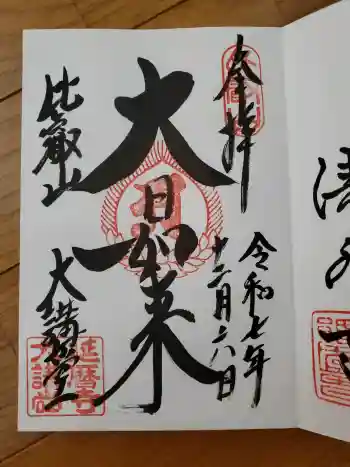 奉拝
令和七年
十二月六八日
大日如来
比叡山
大講堂
延暦寺
大講堂